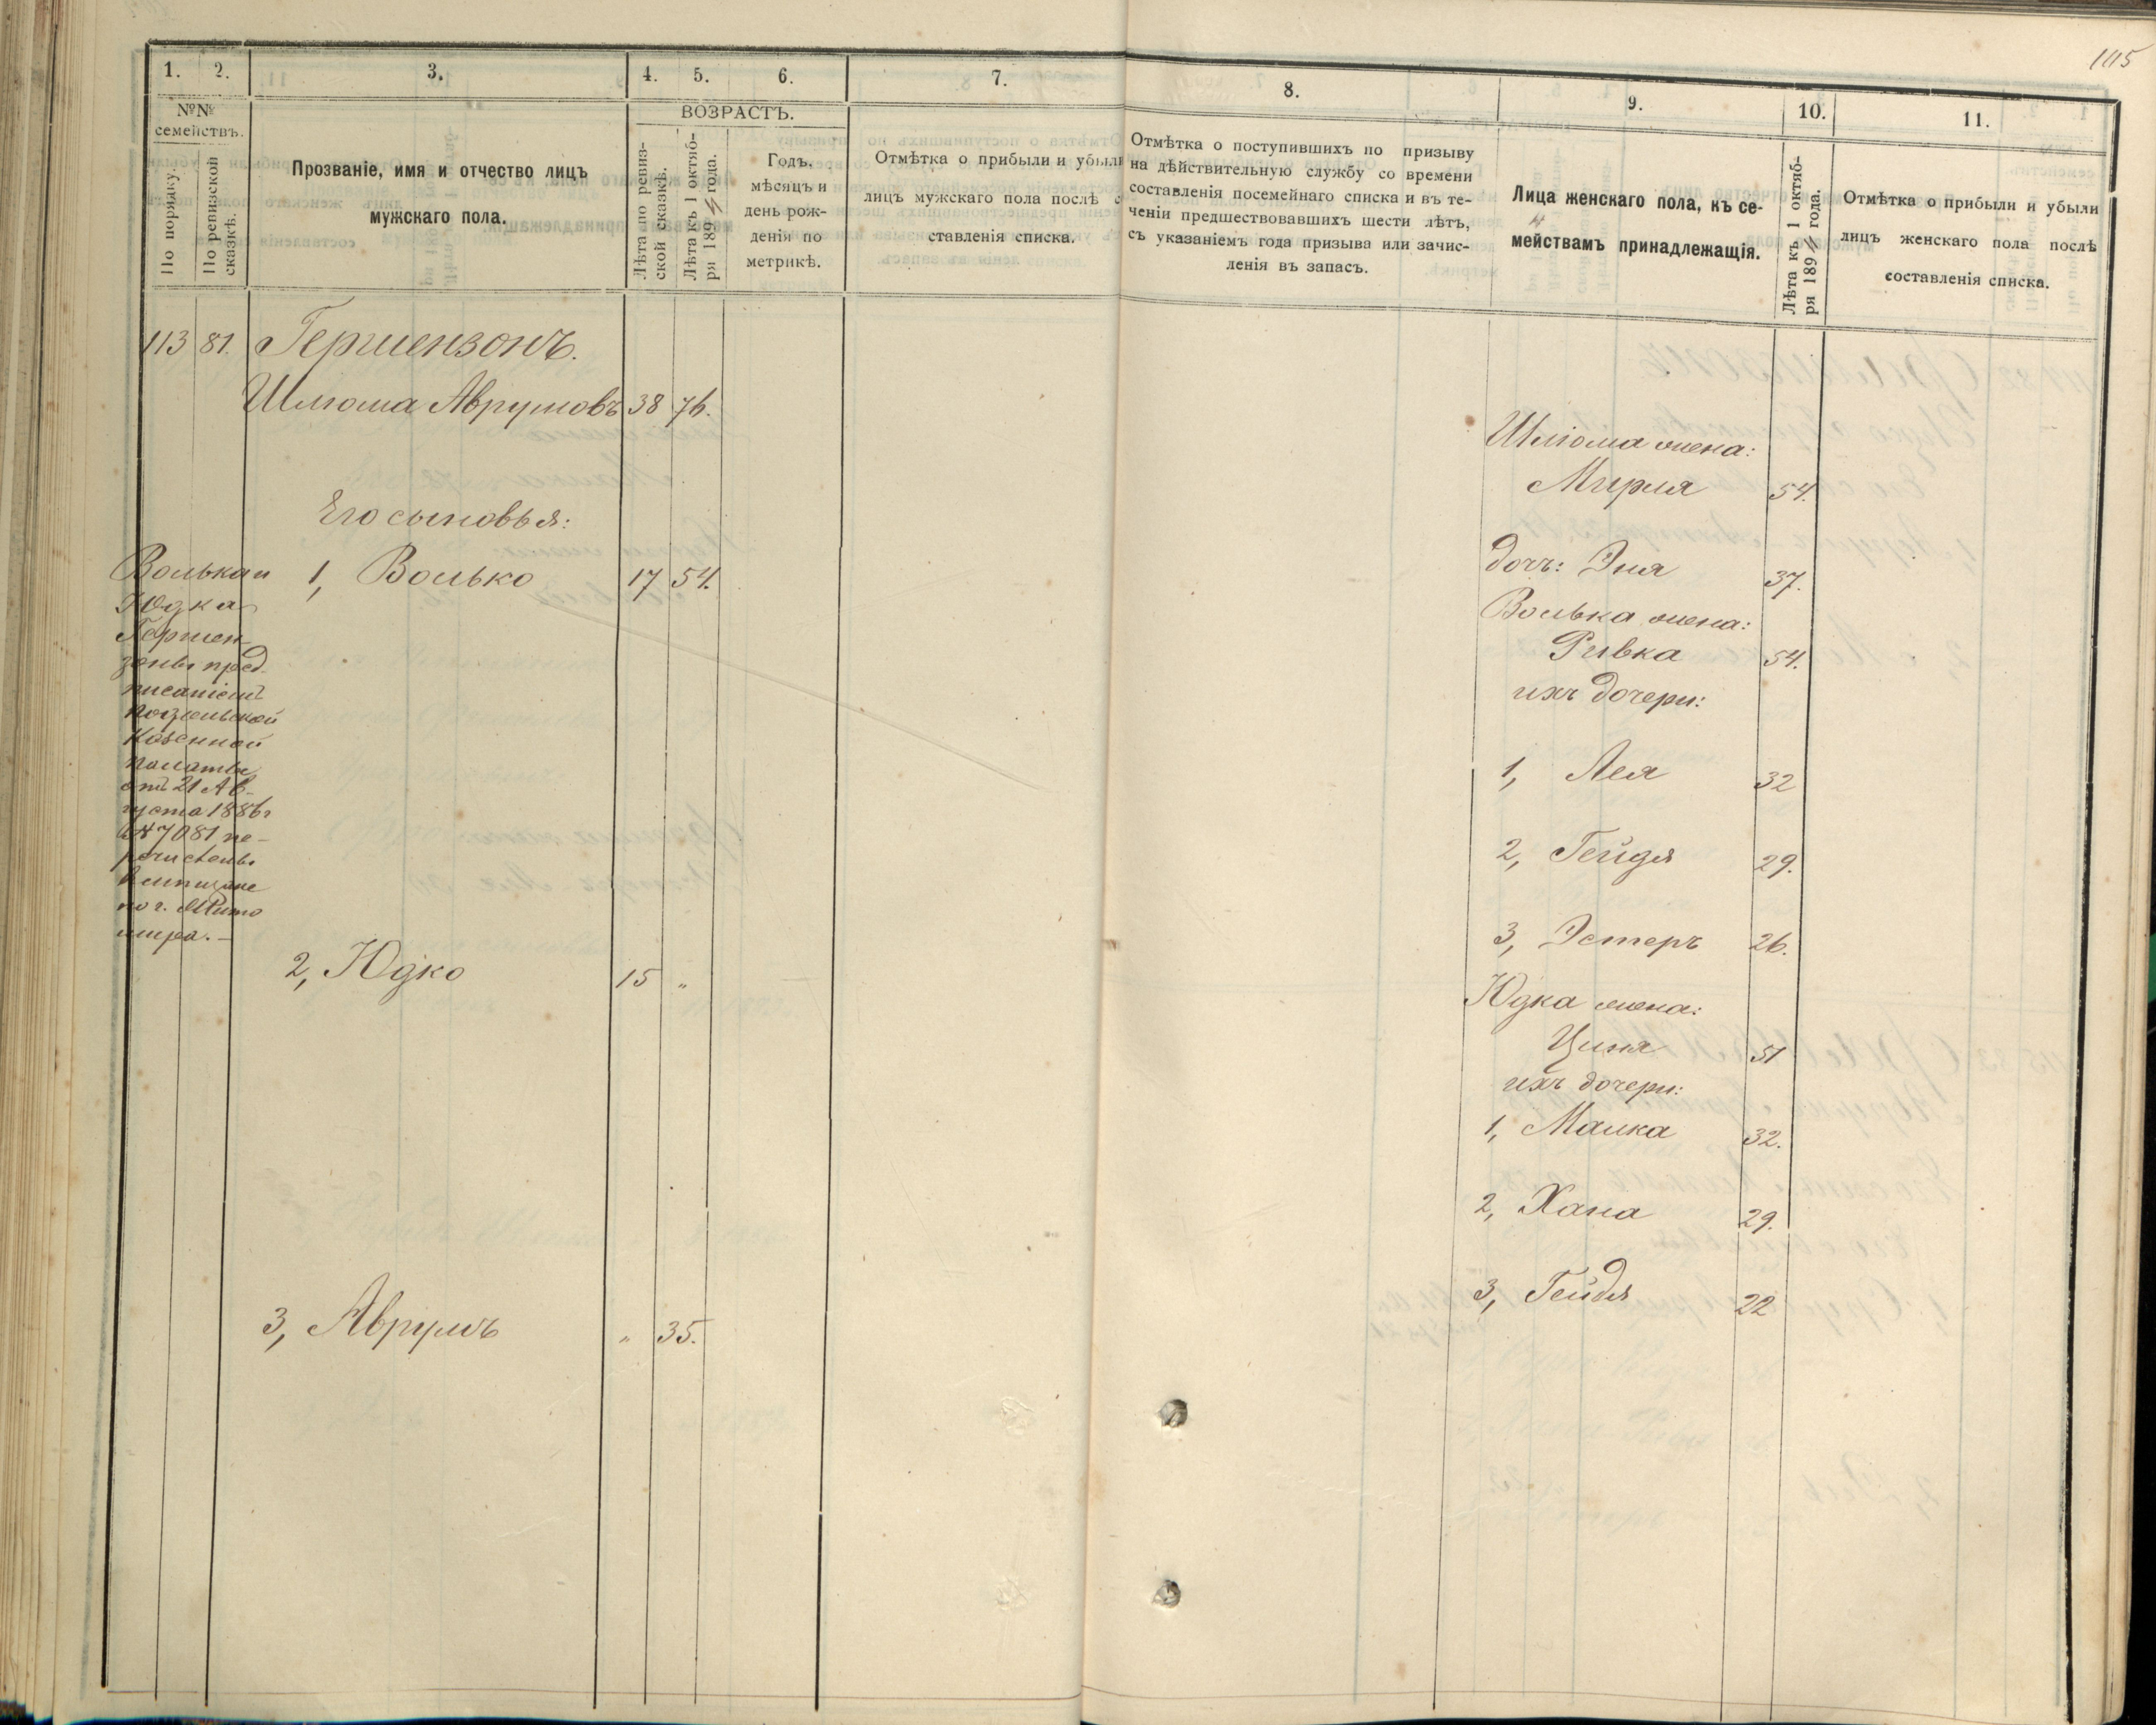 105
1.
2.
3.
4.
5.
6.
7.
8.
9.
10.
11.
№№
семействъ.
По порядку.
По ревизской
сказкѣ.
Прозваніе, имя и отчество лицъ
мужскаго пола.
ВОЗРАСТЪ.
Лѣта по ревиз-
ской сказкѣ.
Лѣта къ 1 октяб-
ря 1894 года.
Годъ,
мѣсяцъ и
день рож-
денія по
метрикѣ.
Отмѣтка о прибыли и убыли
лицъ мужскаго пола послѣ с
ставленія списка.
Отмѣтка о поступившихъ по призыву
на дѣйствительную службу со времени
составленія посемейнаго списка и въ те-
ченіи предшествовавшихъ шести лѣтъ,
съ указаніемъ года призыва или зачис-
ленія въ запасъ.
Лица женскаго пола, къ се-
мействамъ принадлежащія.
Лѣта къ 1 октяб-
ря 1894 года.
Отмѣтка о прибыли и убыли
лицъ женскаго пола послѣ
составленія списка.
113 81. Гершензонъ.
Шлиома Аврумовъ 38 76.
Его сыновья:
1, Волько 17 54.
Волька и
Юдка
Гершен
зоны пред
писаніемъ
подольской
казенной
палаты
отъ 21 Ав-
густа 1886 г
№ 7081 пе-
речислены
в мещане
по г. Жито
мира.
2, Юдко 15 "
3, Аврумъ " 35.
Шлиома жена:
Мирля 54.
дочь: Эня 37.
Волька жена:
Ривка 54.
ихъ дочери:
1, Лея 32
2, Гейдя 29.
3, Эстеръ 26.
Юдка жена:
Циня 51
ихъ дочери:
1, Малка 32.
2, Хана 29.
3, Гейдя 22